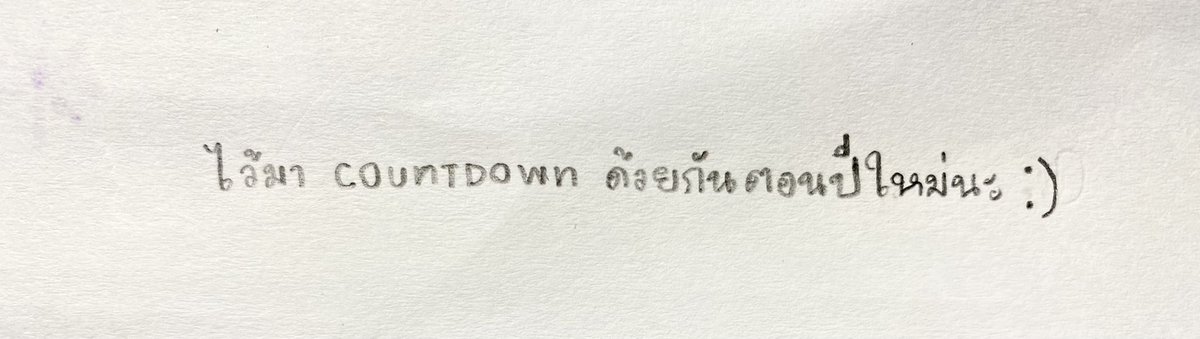 ไว้มา COUNTDOWN ด้วยกันตอนปีใหม่นะ :)